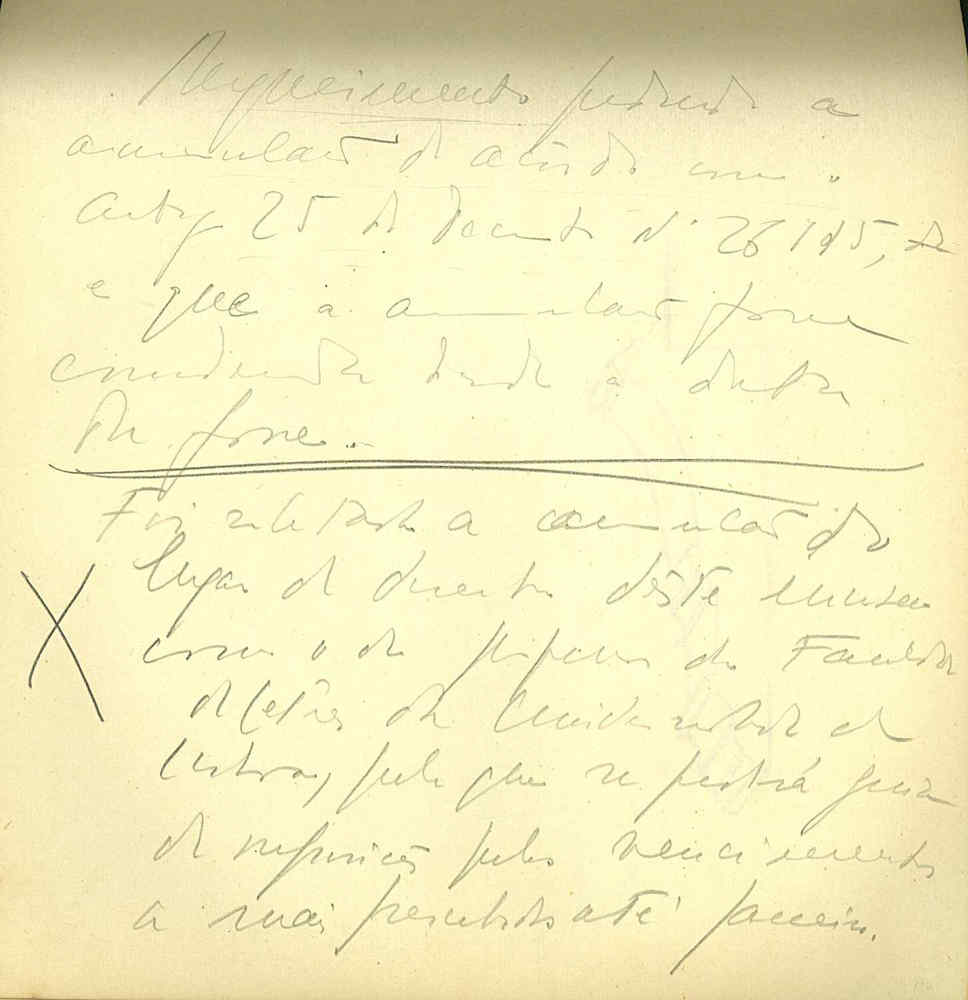 Requerimento pedindo a
acumulação de acôrdo com o
Artigo 25 do Decreto Nº 26115, de
e que a acumulação fosse
considerada desde a data
da posse.
Foi solicitada a acumulação do
lugar de director dêste museu
com o de professor da Faculdade
de Letras da Universidade de
Lisboa, pelo que se pedirá guia
de reposição pelos vencimentos
a mais recebidos até Janeiro.